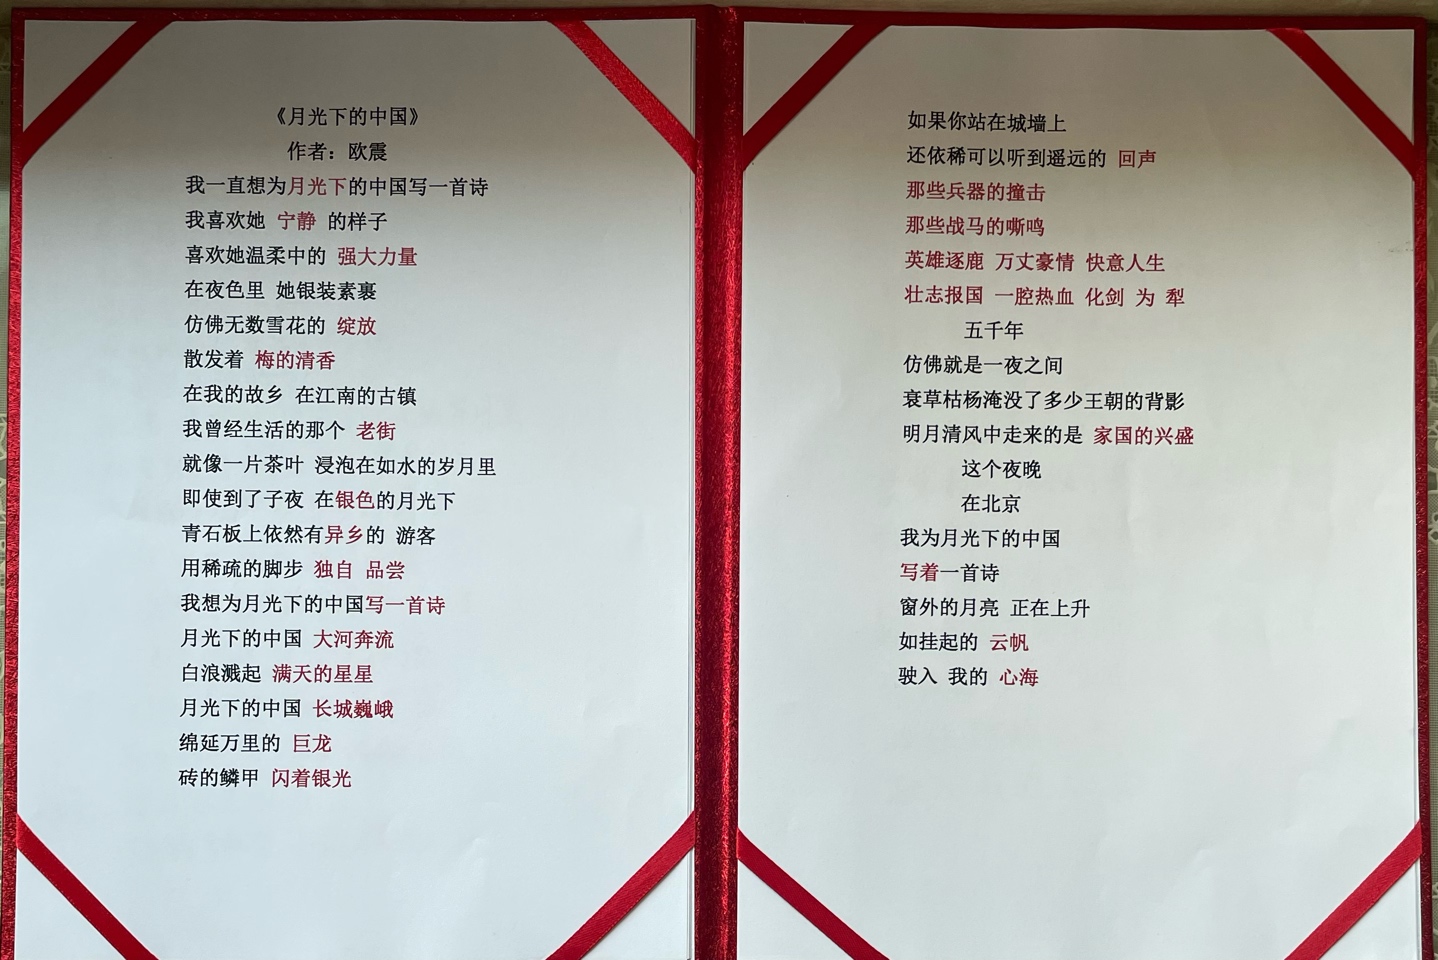 《月光下的中国》
作者：欧震
我一直想为月光下的中国写一首诗
我喜欢她 宁静 的样子
喜欢她温柔中的 强大力量
在夜色里 她银装素裹
仿佛无数雪花的 绽放
散发着 梅的清香
在我的故乡 在江南的古镇
我曾经生活的那个 老街
就像一片茶叶 浸泡在如水的岁月里
即使到了子夜 在银色的月光下
青石板上依然有异乡的 游客
用稀疏的脚步 独自 品尝
我想为月光下的中国写一首诗
月光下的中国 大河奔流
白浪溅起 满天的星星
月光下的中国 长城巍峨
绵延万里的 巨龙
砖的鳞甲 闪着银光
如果你站在城墙上
还依稀可以听到遥远的 回声
那些兵器的撞击
那些战马的嘶鸣
英雄逐鹿 万丈豪情 快意人生
壮志报国 一腔热血 化剑 为 犁
五千年
仿佛就是一夜之间
衰草枯杨淹没了多少王朝的背影
明月清风中走来的是 家国的兴盛
这个夜晚
在北京
我为月光下的中国
写着一首诗
窗外的月亮 正在上升
如挂起的 云帆
驶入 我的 心海